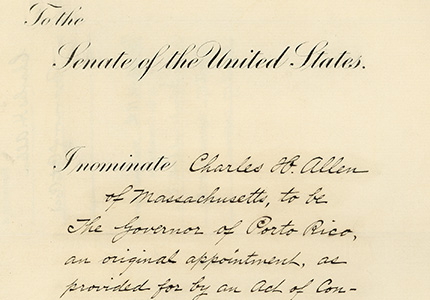 To the
Senate of the United States.
I nominate Charles H. Allen
of Massachusetts, to be
The Governor of Porto Rico,
an original appointment, as
provided for by an Act of Con-